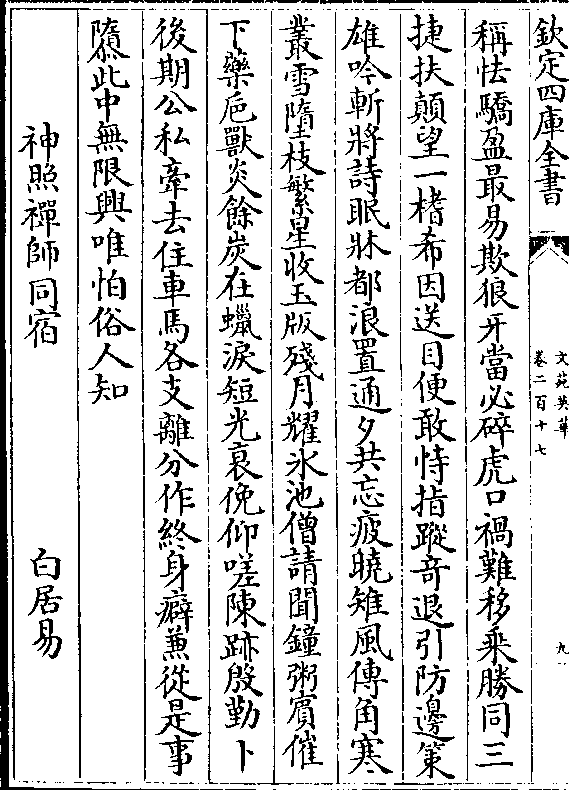 欽定四庫全書
文苑英華
卷二百十七
九
稱怯驕盈最易欺狼牙當必碎虎口禍難移乘勝同三
捷扶顛望一楮希因送目便敢恃指蹤奇退引防邊策
雄吟斬將詩眠牀都浪置通夕共忘疲曉雉風傳角寒
叢雪墮枝繁星收玉版殘月耀氷池僧請聞鐘粥賓催
下藥巵獸炎餘炭在蠟淚短光衰俛仰嗟陳跡殷勤卜
後期公私牽去住車馬各支離分作終身癖兼從是事
隳此中無限興唯怕俗人知
神照禪師同宿
白居易